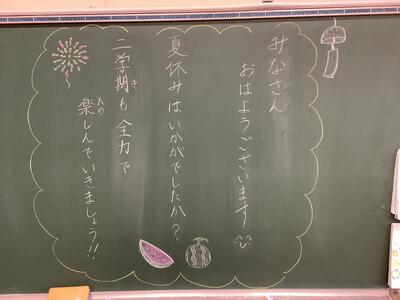 みなさん
おはようございます
夏休みはいかがでしたか?
二学期も全力で
楽しんでいきましょう!!